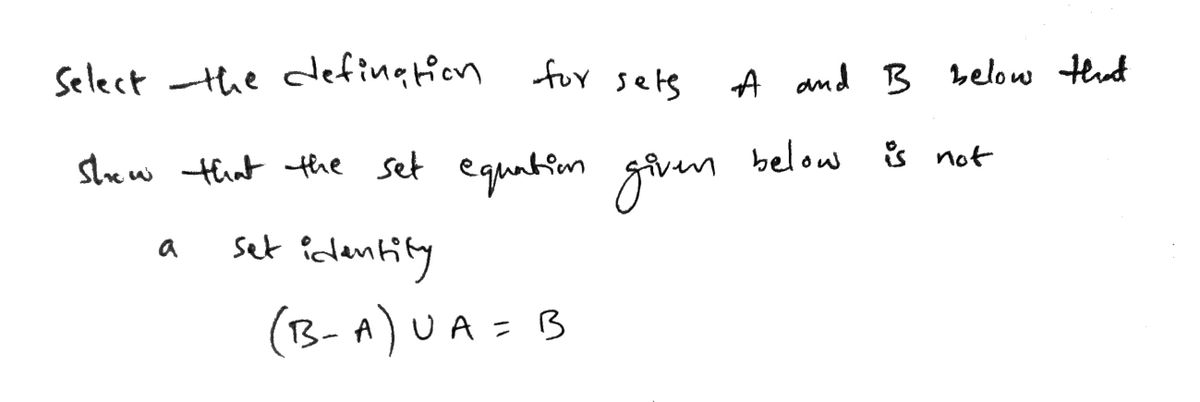 Select the defination for sets A and B below that
show that the set equation given below is not
a set identity
(B - A) ∪ A = B